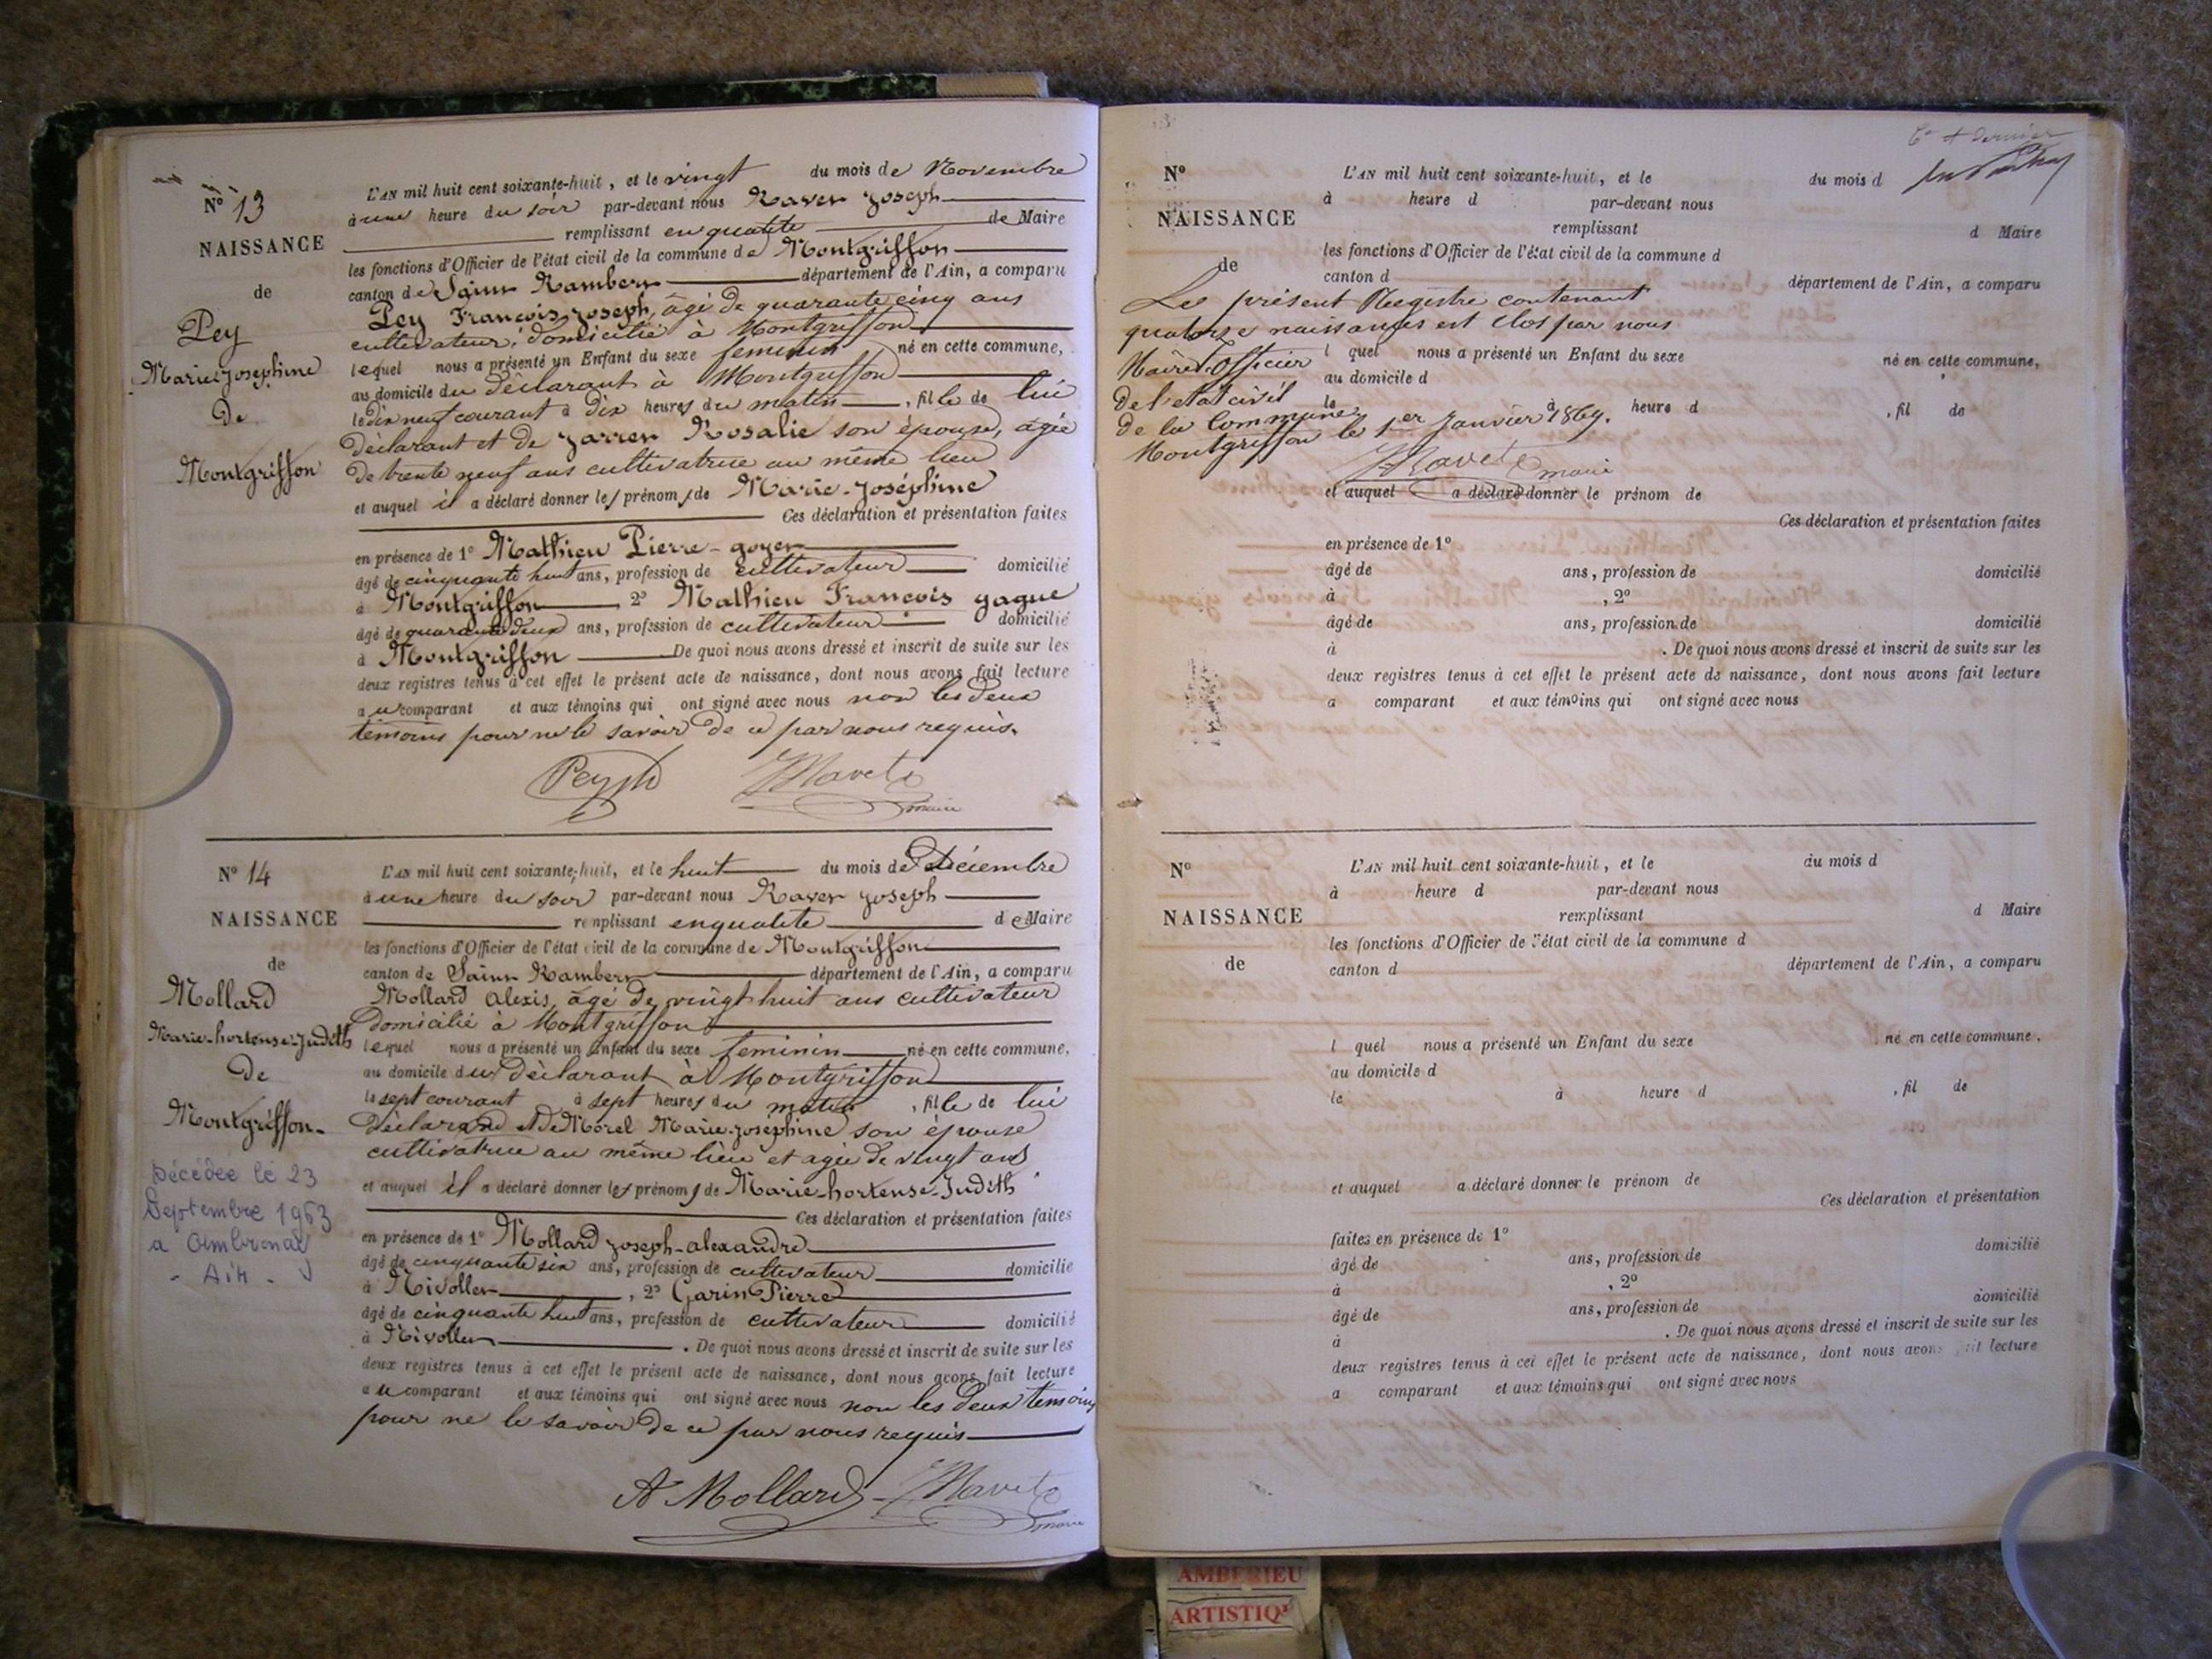 Nº 13
NAISSANCE
de
Pey
Marie Joséphine
De
Montgriffon
L'AN mil huit cent soixante-huit, et le vingt du mois de Novembre
à une heure du soir par-devant nous Ravet Joseph
remplissant en qualité de Maire
les fonctions d'Officier de l'état civil de la commune de Montgriffon
canton de Saint Rambert département de l'Ain, a comparu
Pey François Joseph, âgé de quarante cinq ans
cultivateur, domicilié à Montgriffon
lequel nous a présenté un Enfant du sexe feminin né en cette commune,
au domicile du déclarant à Montgriffon
le dix neuf courant à dix heures du matin, fille de lui
déclarant et de Jarret Rosalie son épouse, agée
de trente neuf ans cultivatrice au même lieu
et auquel il a déclaré donner les prénoms de Marie-Joséphine
Ces déclaration et présentation faites
en présence de 1º Mathieu Pierre-goyet
âgé de cinquante huit ans, profession de cultivateur domicilié
à Montgriffon 2º Mathieu François gague
âgé de quarante deux ans, profession de cultivateur domicilié
à Montgriffon De quoi nous avons dressé et inscrit de suite sur les
deux registres tenus à cet effet le présent acte de naissance, dont nous avons fait lecture
au comparant et aux témoins qui ont signé avec nous non les deux
témoins pour ne le savoir de ce par nous requis.
Pey Ravet
maire
Nº 14
NAISSANCE
de
Mollard
Marie-hortense-Judith
De
Montgriffon.
Décédée le 23
Septembre 1963
a Ambronay
- Ain -
L'AN mil huit cent soixante-huit, et le huit du mois de Décembre
à une heure du soir par-devant nous Ravet Joseph
remplissant en qualité de Maire
les fonctions d'Officier de l'état civil de la commune de Montgriffon
canton de Saint Rambert département de l'Ain, a comparu
Mollard Alexis, âgé de vingt huit ans cultivateur
domicilié à Montgriffon
lequel nous a présenté un Enfant du sexe feminin né en cette commune,
au domicile du déclarant à Montgriffon
le sept courant à sept heures du matin, fille de lui
déclarand et de Morel Marie-Joséphine son épouse
cultivatrice au même lieu et agée de vingt ans
et auquel il a déclaré donner les prénoms de Marie-hortense-Judith
Ces déclaration et présentation faites
en présence de 1º Mollard Joseph-alexandre
âgé de cinquante six ans, profession de cultivateur domicilié
à Nivollet, 2º Garin Pierre
âgé de cinquante huit ans, profession de cultivateur domicilié
à Nivollet. De quoi nous avons dressé et inscrit de suite sur les
deux registres tenus à cet effet le présent acte de naissance, dont nous avons fait lecture
au comparant et aux témoins qui ont signé avec nous non les deux temoins
pour ne le savoir de ce par nous requis
A Mollard Ravet
maire
6e & dernier
Nº
NAISSANCE
de
L'AN mil huit cent soixante-huit, et le du mois d
à heure d par-devant nous
remplissant d Maire
les fonctions d'Officier de l'état civil de la commune d
canton d département de l'Ain, a comparu
Le présent Registre contenant
quatorze naissances est clos par nous
Maire Officier
de l'état civil
de la Commune
Montgriffon le 1er Janvier 1869.
Ravet
maire
l quel nous a présenté un Enfant du sexe né en cette commune,
au domicile d
le à heure d, fil de
et auquel a déclaré donner le prénom de
Ces déclaration et présentation faites
en présence de 1º
âgé de ans, profession de domicilié
à, 2º
âgé de ans, profession de domicilié
à. De quoi nous avons dressé et inscrit de suite sur les
deux registres tenus à cet effet le présent acte de naissance, dont nous avons fait lecture
a comparant et aux témoins qui ont signé avec nous
Nº
NAISSANCE
de
L'AN mil huit cent soixante-huit, et le du mois d
à heure d par-devant nous
remplissant d Maire
les fonctions d'Officier de l'état civil de la commune d
canton d département de l'Ain, a comparu
l quel nous a présenté un Enfant du sexe né en cette commune,
au domicile d
le à heure d, fil de
et auquel a déclaré donner le prénom de
Ces déclaration et présentation
faites en présence de 1º
âgé de ans, profession de domicilié
à, 2º
âgé de ans, profession de domicilié
à. De quoi nous avons dressé et inscrit de suite sur les
deux registres tenus à cet effet le présent acte de naissance, dont nous avons fait lecture
a comparant et aux témoins qui ont signé avec nous
AMBERIEU
ARTISTIQ